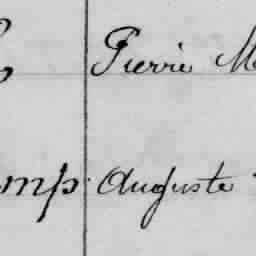 Pierre M
mp. Auguste